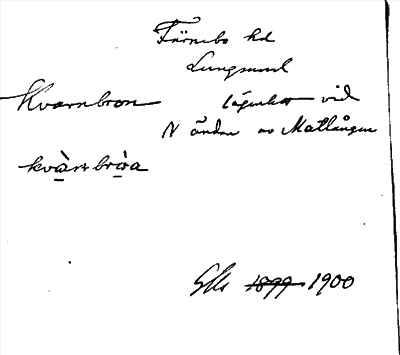 Färnebo hd
Lungsund
Kvarnbron lägenhet vid
N ändan av Matlången
kvà̱rnbrò̱a
1899 1900